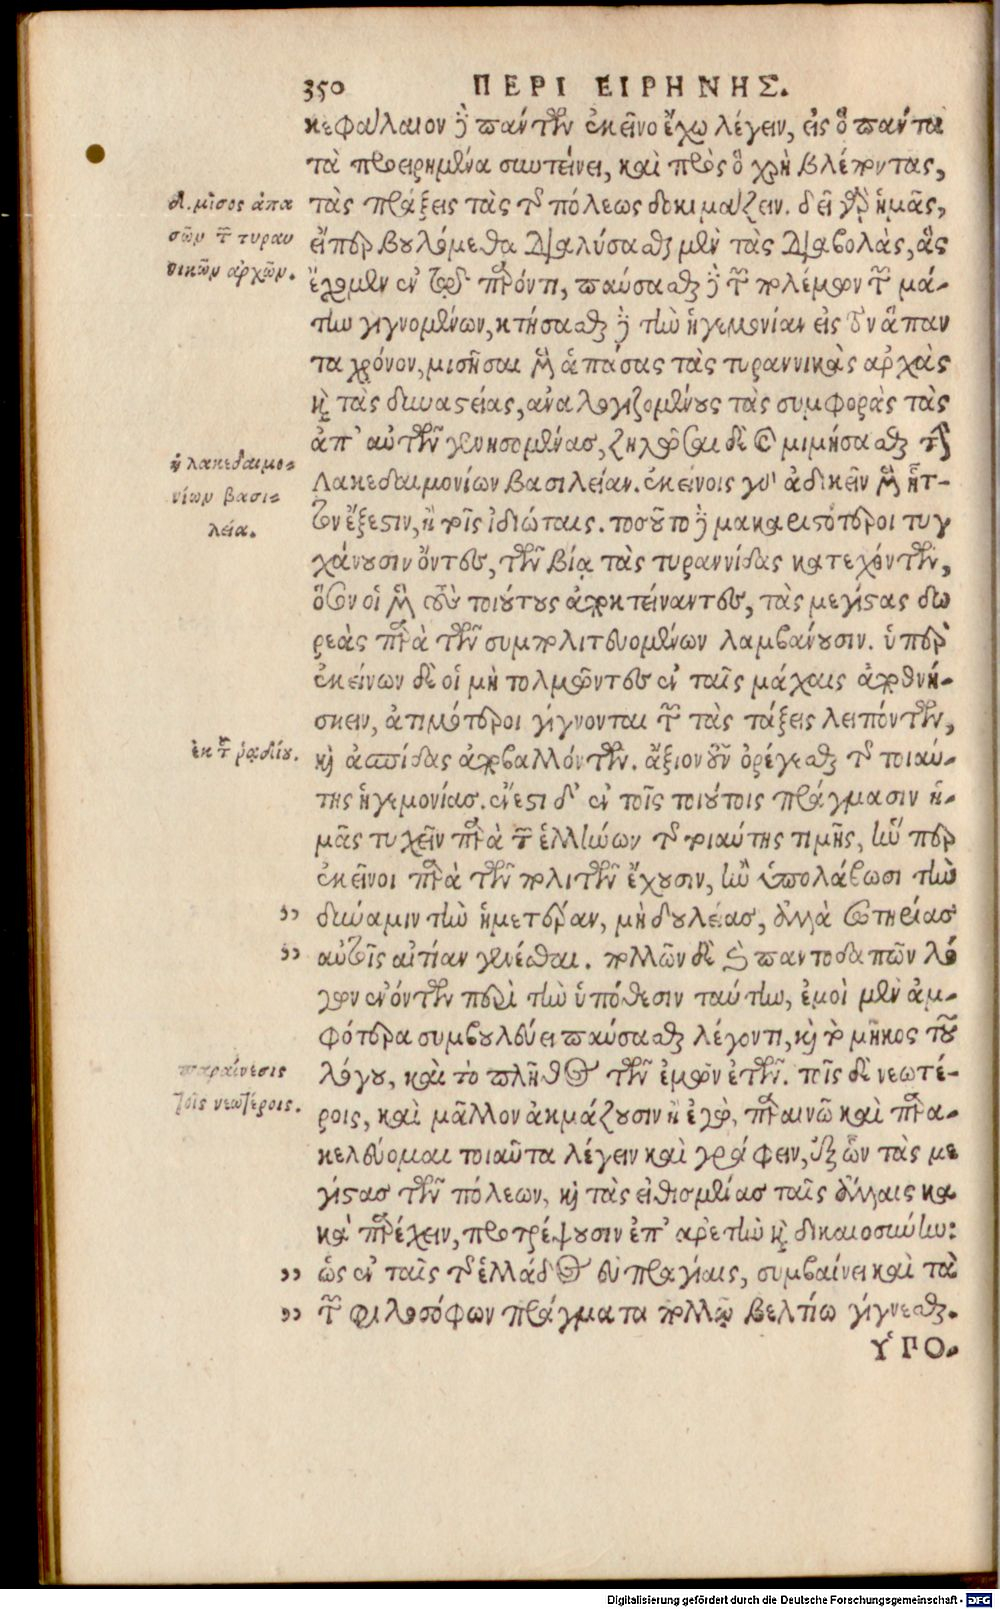 350 ΠΕΡΙ ΕΙΡΗΝΗΣ.
κεφάλαιον δὲ πάντων ἐκεῖνο ἔχω λέγειν, εἰς ὃ πάντα
τὰ προειρημένα συντείνει, καὶ πρὸς ὃ χρὴ βλέποντας,
τὰς πράξεις τὰς τῆς πόλεως δοκιμάζειν. δεῖ γὰρ ἡμᾶς,
εἴπερ βουλόμεθα διαλύσασθαι μὲν τὰς διαβολὰς, ἃς
ἔχομεν ἐν τῷ παρόντι, παύσασθαι δὲ τῶν πολέμων τῶν μά-
την γιγνομένων, κτήσασθαι δὲ τὴν ἡγεμονίαν εἰς τὸν ἅπαν
τα χρόνον, μισῆσαι μὲν ἁπάσας τὰς τυραννικὰς ἀρχὰς
καὶ τὰς δυναστείας, ἀναλογιζομένους τὰς συμφορὰς τὰς
ἀπ' αὐτῶν γενησομένας, ζηλῶσαι δὲ καὶ μιμήσασθαι τὴν
Λακεδαιμονίων βασιλείαν. ἐκείνοις γὰρ ἀδικεῖν μὲν ἧτ-
τον ἔξεστιν, ἢ τοῖς ἰδιώταις. τοσοῦτο δὲ μακαριστότεροι τυγ
χάνουσιν ὄντες, τῶν βίᾳ τὰς τυραννίδας κατεχόντων,
ὅσον οἱ μὲν τοὺς τοιούτους ἀποκτείναντες, τὰς μεγίστας δω
ρεὰς παρὰ τῶν συμπολιτευομένων λαμβάνουσιν. ὑπὲρ
ἐκείνων δὲ οἱ μὴ τολμῶντες ἐν ταῖς μάχαις ἀποθνή-
σκειν, ἀτιμότεροι γίγνονται τῶν τὰς τάξεις λειπόντων,
καὶ ἀσπίδας ἀποβαλλόντων. ἄξιον οὖν ὀρέγεσθαι τῆς τοιαύ-
της ἡγεμονίας. ἔνεστι δ' ἐν τοῖς τοιούτοις πράγμασιν ἡ-
μᾶς τυχεῖν παρὰ τῶν ἑλλήνων τῆς τοιαύτης τιμῆς, ἥνπερ
ἐκεῖνοι παρὰ τῶν πολιτῶν ἔχουσιν, ἢν ὑπολάβωσι τὴν
" δύναμιν τὴν ἡμετέραν, μὴ δουλείας, ἀλλὰ σωτηρίας
" αὐτοῖς αἰτίαν γενέσθαι. πολλῶν δὲ καὶ παντοδαπῶν λό
γων ἐνόντων περὶ τὴν ὑπόθεσιν ταύτην, ἐμοὶ μὲν ἀμ-
φότερα συμβουλεύει παύσασθαι λέγοντι, καὶ τὸ μῆκος τοῦ
λόγου, καὶ τὸ πλῆθος τῶν ἐμῶν ἐτῶν. τοῖς δὲ νεωτέ-
ροις, καὶ μᾶλλον ἀκμάζουσιν ἢ ἐγὼ, παραινῶ καὶ παρα-
κελεύομαι τοιαῦτα λέγειν καὶ γράφειν, ἐξ ὧν τὰς με
γίστας τῶν πόλεων, καὶ τὰς εἰθισμένας ταῖς ἄλλαις κα
κὰ παρέχειν, προτρέψουσιν ἐπ' ἀρετὴν καὶ δικαιοσύνην:
" ὡς ἐν ταῖς τῆς ἑλλάδος εὐπραγίαις, συμβαίνει καὶ τὰ
" τῶν φιλοσόφων πράγματα πολλῷ βελτίω γίγνεσθαι.
ΥΠΟ-
α. μῖσος ἁπα
σῶν τῶν τυραν
νικῶν ἀρχῶν.
ἡ λακεδαιμο-
νίων βασι-
λεία.
ἐκ τοῦ ῥᾳδίου.
παραίνεσις
τοῖς νεωτέροις.
Digitalisierung gefördert durch die Deutsche Forschungsgemeinschaft - DFG